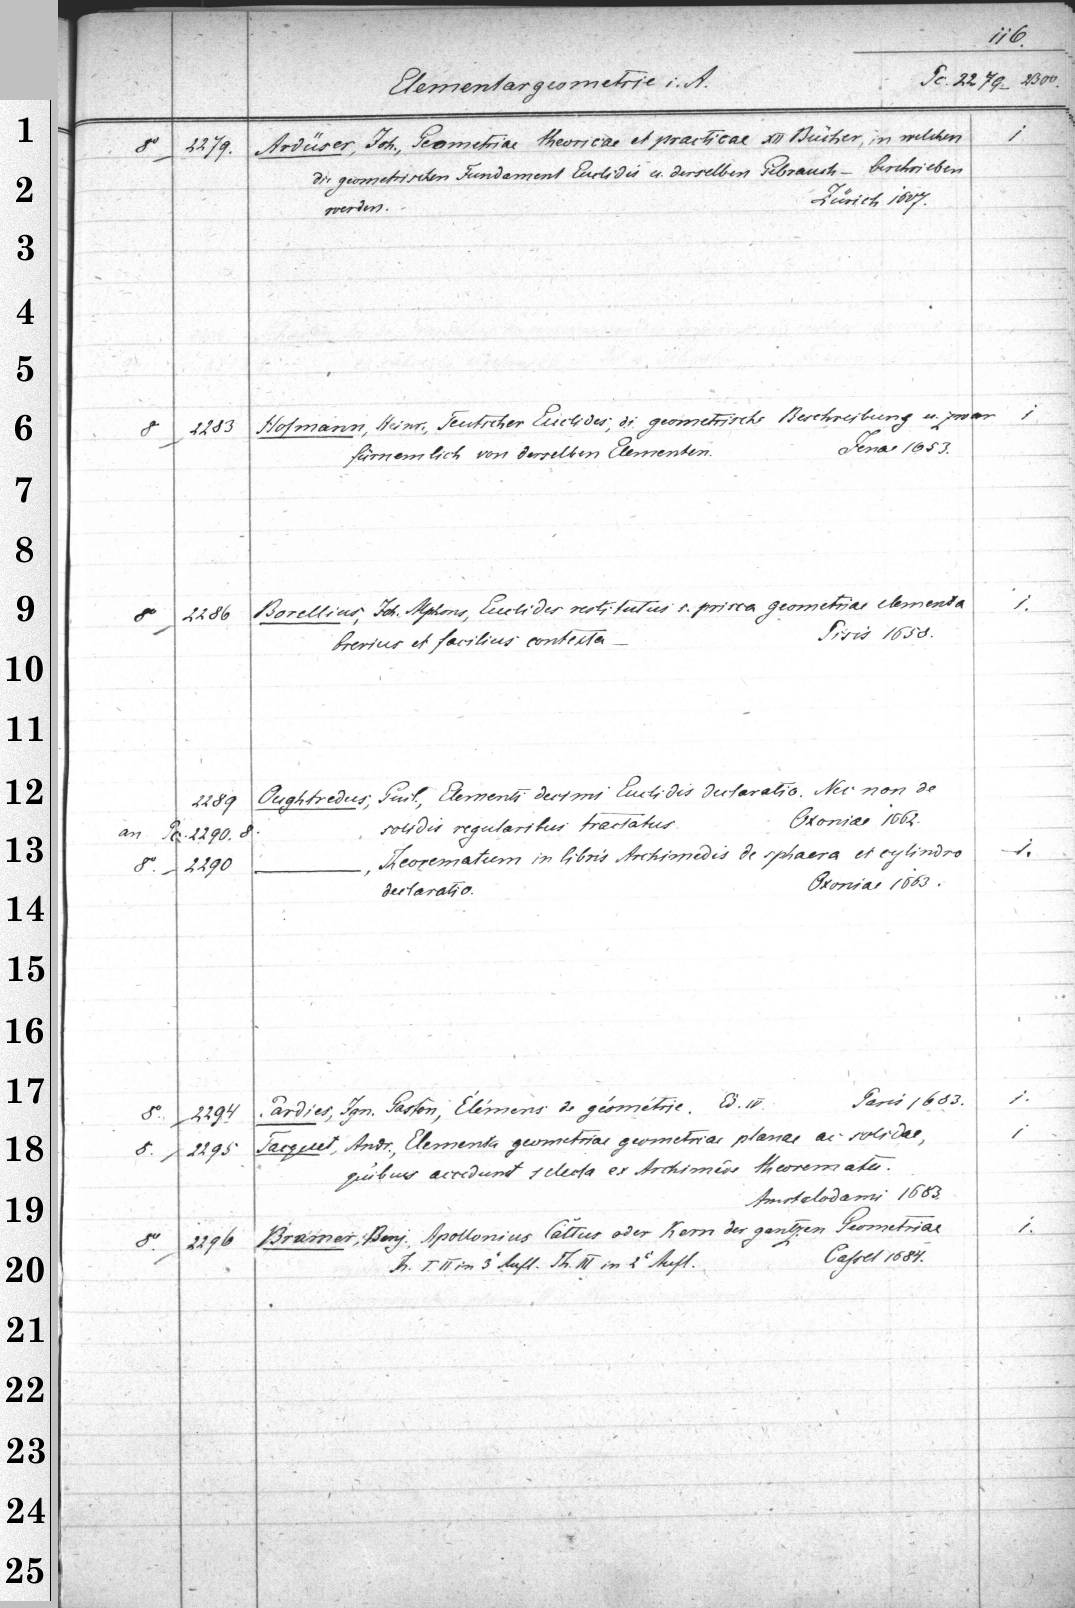 116.
Elementargeometrie i. A. Pc. 2279-2300.
1 8° 2279. Ardüser, Joh., Geometriae theoricae et practicae XII Bücher, in welchen 1
2 die geometrischen Fundament Euclidis u. derselben Gebrauch – beschrieben
werden. Zürich 1607.
3
4
5
6 8 2283 Hofmann, Heinr., Teutscher Euclides, di geometrische Beschreibung u. zwar 1
fürnemlich von derselben Elementen. Jenae 1653.
7
8
9 8° 2286 Borellius, Joh. Alphons, Euclides restitutus s. prisca geometriae elementa 1.
brevius et facilius contexta – Pisis 1658.
10
11
12 2289 Oughtredus, Guil., Elementi decimi Euclidis declaratio. Nec non de
an Pc. 2290. 8. solidis regularibus tractatus Oxoniae 1662.
13 8°. 2290 ———, Theorematum in libris Archimedis de sphaera et cylindro 1.
declaratio. Oxoniae 1663.
14
15
16
17 8°. 2294 Pardies, Ign. Gaston, Élémens de géométrie. Ed. IV. Paris 1683. 1.
18 8. 2295 Tacquet, Andr., Elementa geometriae geometriae planae ac solidae, 1
quibus accedunt selecta ex Archimede theoremata.
19 Amstelodami 1683
8°. 2296 Bramer, Benj. Apollonius Cattus oder Kern der gantzen Geometriae 1.
20 Th. I. II in 3r Aufl. Th. III in 2r Aufl. Cassel 1684.
21
22
23
24
25